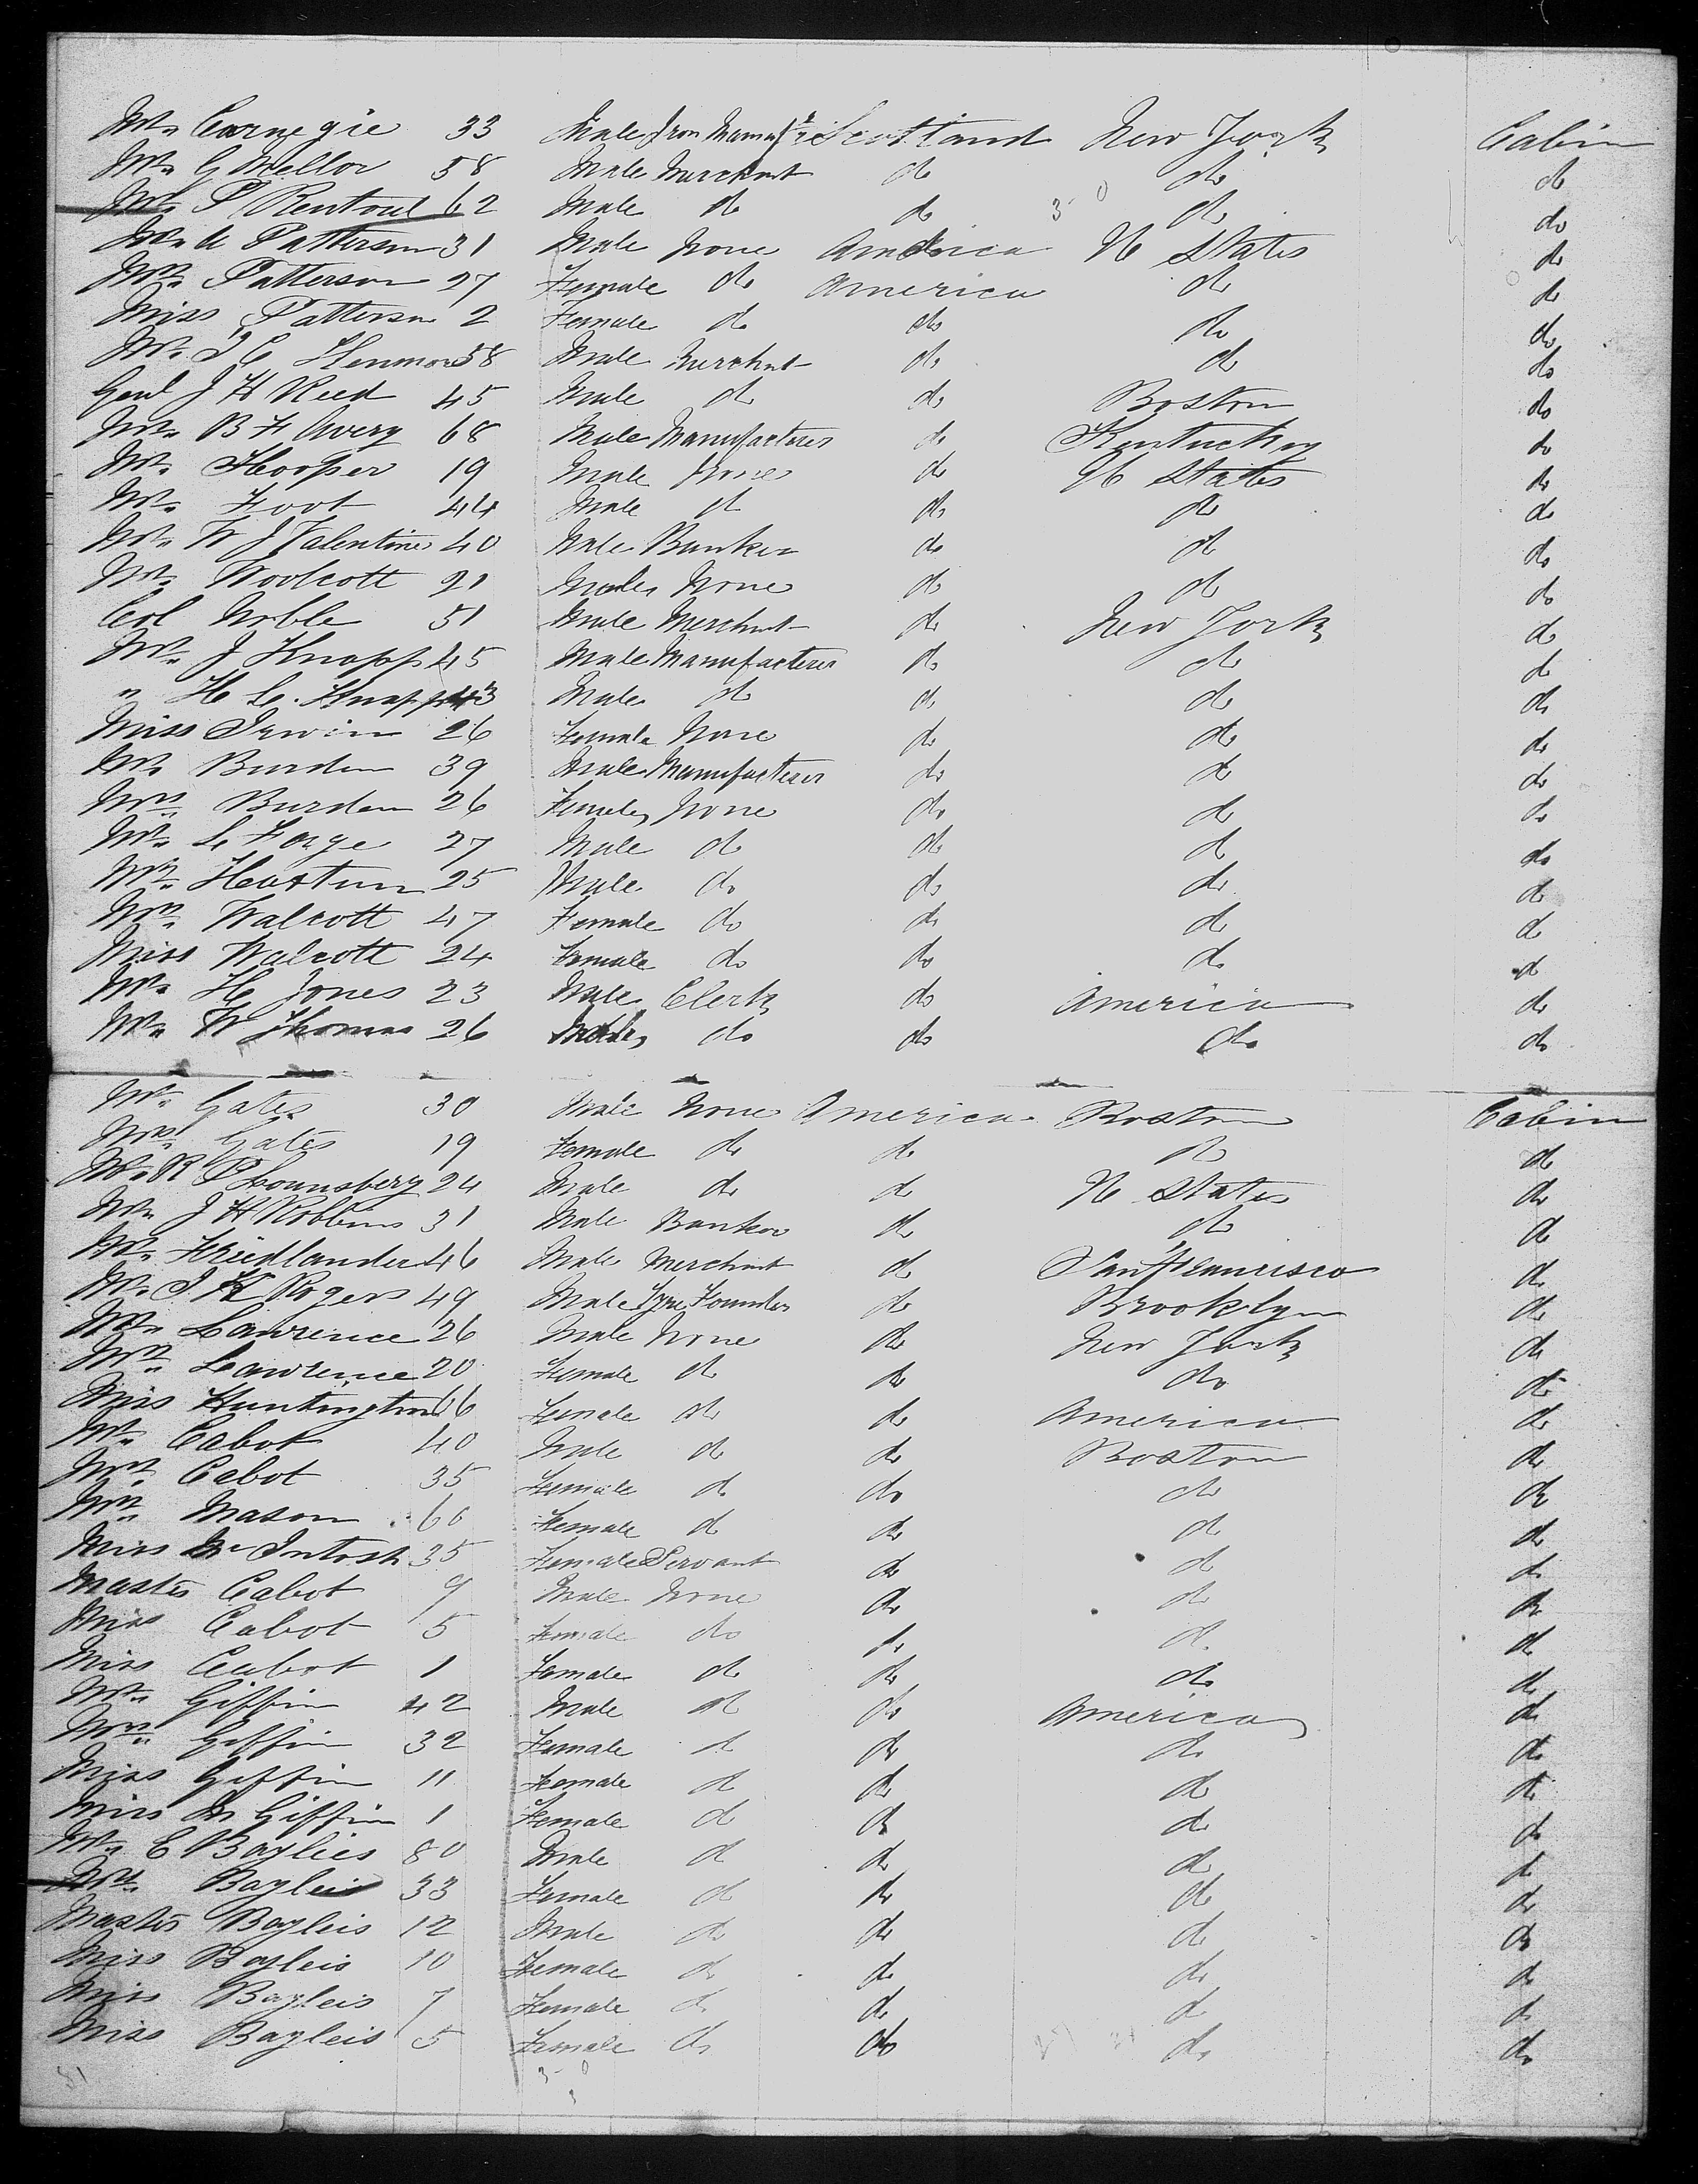 Mr. Carnegie 33 Male Iron Manufr Scotland New York Cabin
Mr. G Mellor 58 Male Merchant do do do
Mr. P Rentoul 62 Male do do do do
Mr. de Patterson 31 Male None America U States do
Mrs. Patterson 27 Female do America do do
Miss Patterson 2 Female do do do do
Mr. J C 58 Male Merchant do do do
Genl J H Reed 45 Male do do Boston do
Mr. B F Avery 68 Male Manufacturer do Kentucky do
Mr. Hooper 19 Male None do U States do
Mr. Foot 44 Male do do do do
Mr. W J Valentine 40 Male Banker do do do
Mr. Woolcott 21 Male None do do do
Col Noble 51 Male Merchant do New York do
Mr. J Knapp 45 Male Manufacturer do do do
" H C. Knapp 43 Male do do do do
Miss Irwin 26 Female None do do do
Mr. Burden 39 Male Manufacturer do do do
Mrs. Burden 26 Female None do do do
Mr. L Forge 27 Male do do do do
Mr. 25 Male do do do do
Mrs. Walcott 47 Female do do do do
Miss Walcott 24 Female do do do do
Mr. H Jones 23 Male Clerk do America do
Mr. W Thomas 26 Male do do do do
Mr. Gates 30 Male None America Boston Cabin
Mrs. Gates 19 Female do do do do
Mr. R P Lounsbery 24 Male do do U States do
Mr. J H Robbins 31 Male Banker do do do
Mr. Friedlander 46 Male Merchant do San Francisco do
Mr. J K Rogers 49 Male Type Founder do Brooklyn do
Mr. Lawrence 26 Male None do New York do
Mrs. Lawrence 20 Female do do do do
Miss Huntington 66 Female do do America do
Mr. Cabot 40 Male do do Boston do
Mrs. Cabot 35 Female do do do do
Mrs. Mason 60 Female do do do do
Miss McIntosh 35 Female Servant do do do
Master Cabot 9 Male None do do do
Miss Cabot 5 Female do do do do
Miss Cabot 1 Female do do do do
Mr. Giffin 42 Male do do America do
Mrs. Giffin 32 Female do do do do
Miss Giffin 11 Female do do do do
Miss M Giffin 1 Female do do do do
Mr. E Baylies 80 Male do do do do
Mrs. Bayleis 33 Female do do do do
Master Bayleis 12 Male do do do do
Miss Bayleis 10 Female do do do do
Miss Bayleis 7 Female do do do do
Miss Bayleis 5 Female do do do do